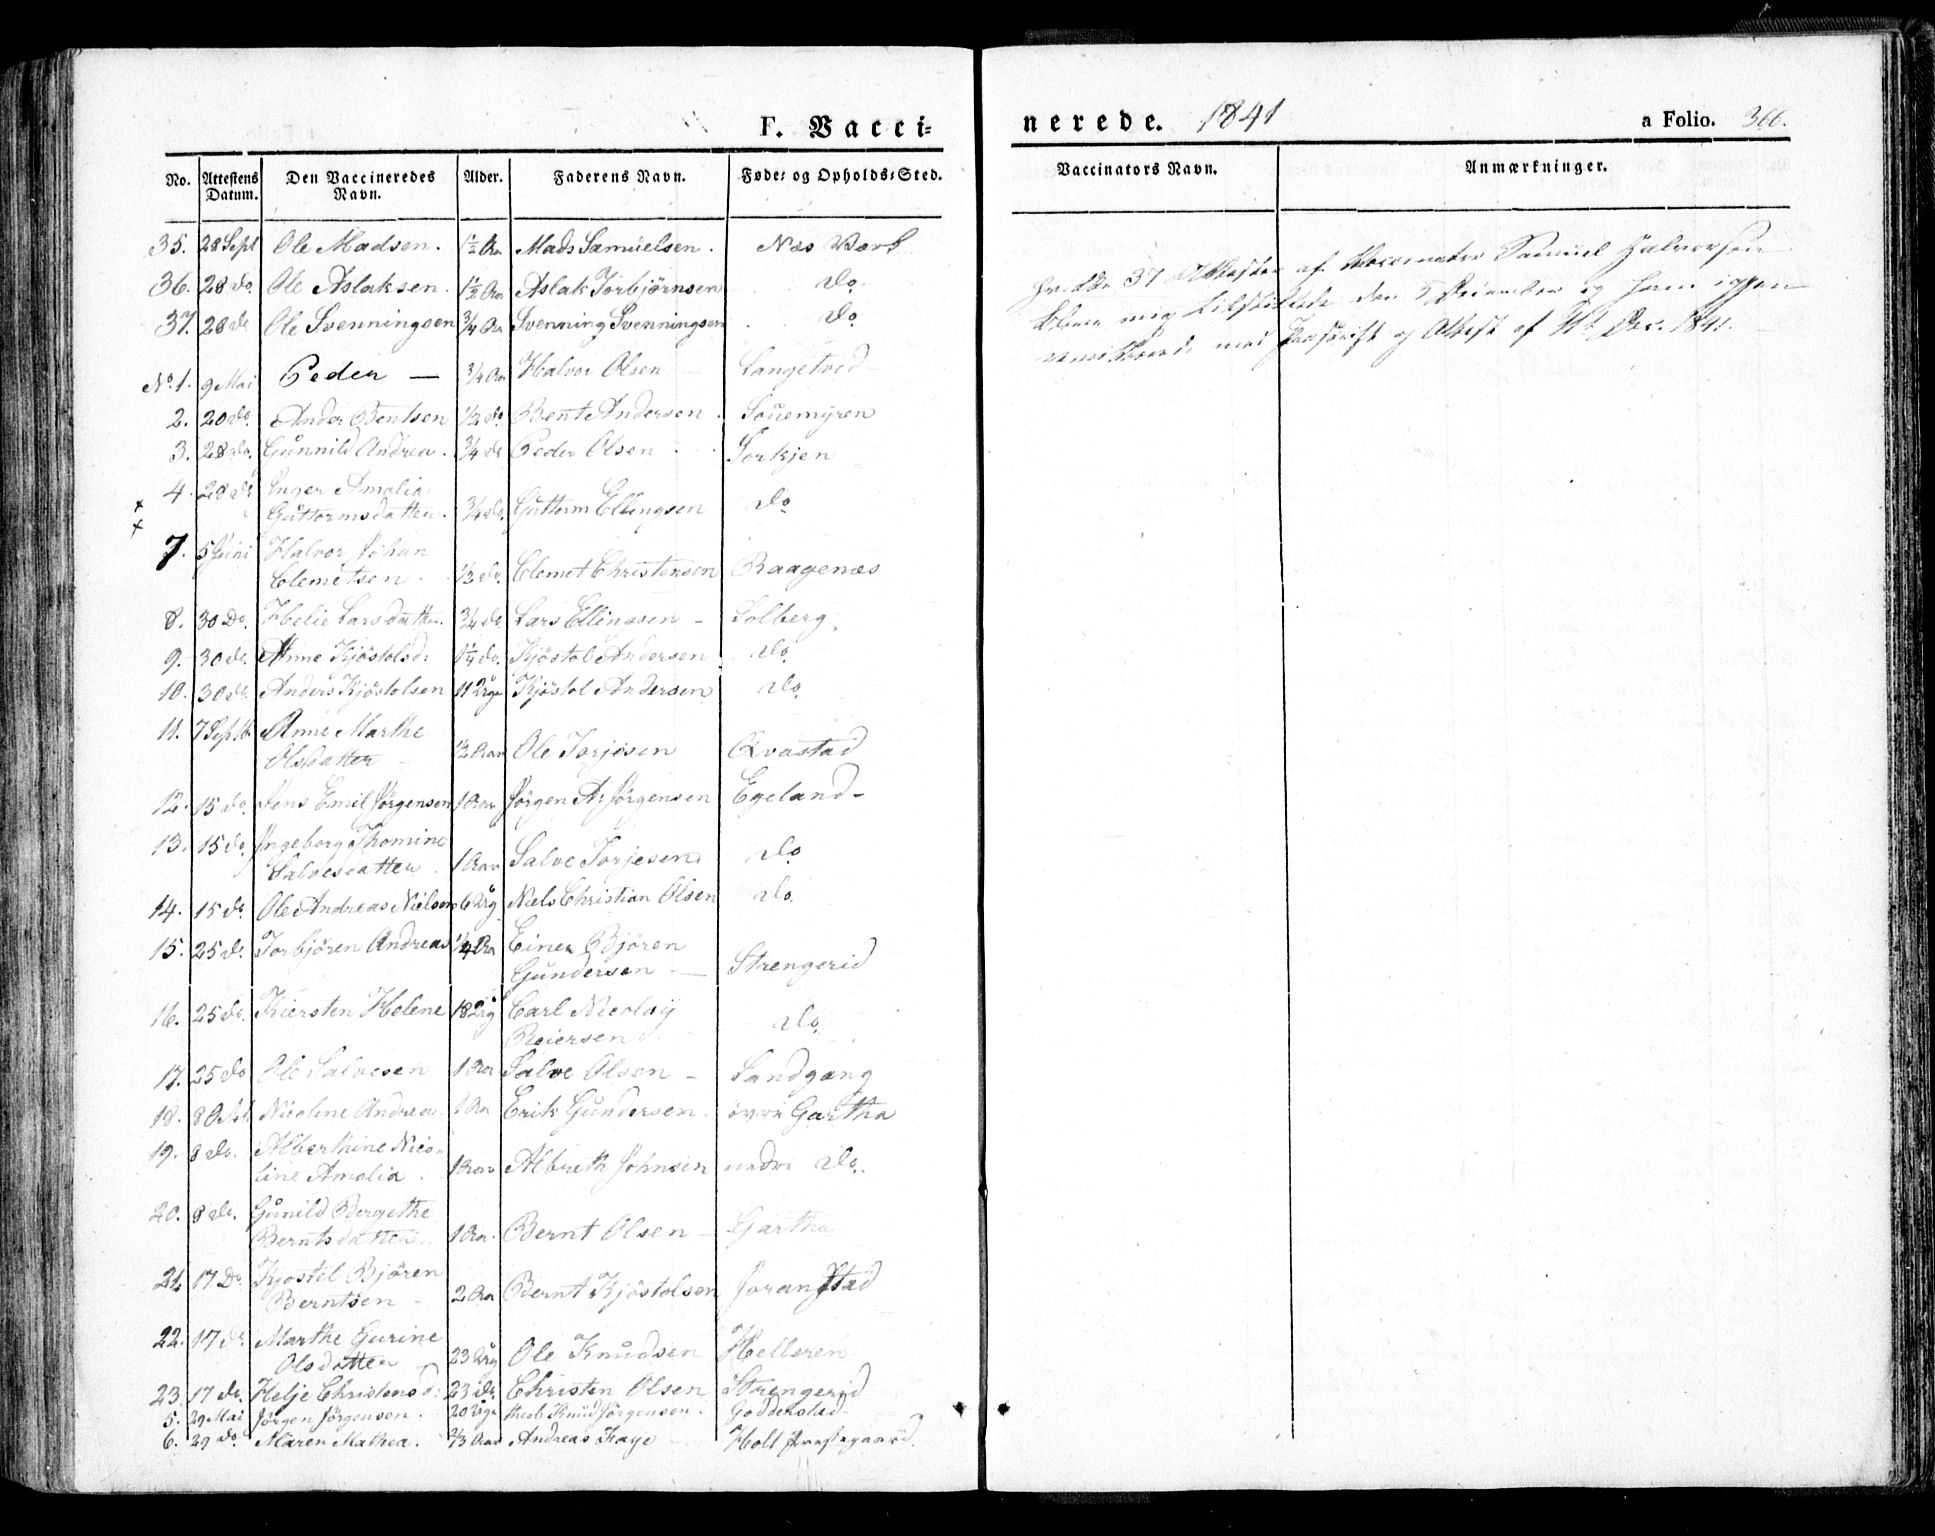 F. Vacci=
nerede. 1841
a Folio. 366.
No. Attestens Datum. Den Vaccineredes Navn. Alder. Faderens Navn. Føde= og Opholds=Sted.
Vaccinators Navn. Anmærkninger.
35. 28 Sept Ole Madsen. 1½ Aar Mads Samuelsen. Næs Værk
36. 28 do. Ole Aslaksen. 1½ Aar Aslak Torbjørnsen do
37. 28 do Ole Svenningsen ¾ Aar Svenning Svenningsen do
No. 1. 9 Mai Peder — ¾ Aar Halvor Olsen — Langetved
2. 20 do. Ander Bentsen ½ do. Bent Andersen. Souemyren
3. 28 do. Gunnild Andrea. ¾ do Peder Olsen Torkjen
4. 28 do Inger Amalia
Guttormsdatter. ¾ do. Guttorm Ellingsen do
7. 5 Juni Halvor Johan
Clemetsen ½ do. Clemet Christensen Raagenæs
8. 30 Do. Helie Larsdatter. ¾ do Lars Ellingsen — Solberg.
9. 30 do. Anne Kjöstolsd: 1¼ do. Kjöstol Andersen do
10. 30 do. Anders Kjöstolsen 11 Kjöstol Andersen do.
11. 7 Septb Anne Marthe
Olsdatter ½ Aar Ole Torjesen Qvastad
12. 15 do. Jens Emil Jørgensen 1 Aar Jørgen A. Jørgensen Egeland
13. 15 do. Ingeborg Thomine
Salvesdatter. 1 Aar Salve Torjesen do
14. 15 do. Ole Andreas Nielsen 6 Niels Christian Olsen do.
15. 25 do. Torbjören Andreas Aar Einer Björen
Gundersen — Strengerid
16. 25 do. Kiersten Helene 18 Carl Nicolaÿ
Reiersen do.
17. 25 do Ole Salvesen 1 Aar Salve Olsen — Sandgang
18. 8 Octob Nicoline Andrea. 1 Aar Erik Gundersen. övre Gartha
19. 8 do. Alberthine Nico=
line Amalia. 1 Aar Albreth Johnsen nedre do.
20. 8 do. Gunild Bergethe
Berntsdatter 1 Aar. Bernt Olsen — Gartha
21. 17 Do. Kjøstel Björen
Berntsen — 2 Aar Bernt Kjöstolsen Joranstad
22. 17 do. Marthe Gurine
Olsdatter 23 Ole Knudsen Helleren
23. 17 do. Helje Christensd: 23 do. Christen Olsen Strengerid
5. 29 Mai Jørgen Jørgensen. 20 Knud Jørgensen. Goderstad
6. 29 do. Maren Mathea. ⅔ Aar Andreas Faye — Holt Præstegaard.
37 Attester af Vaccinator Samuel Halvorsen
mig den 5 December og ham igjen
med Paaskrift og Attest af Dec. 1841.